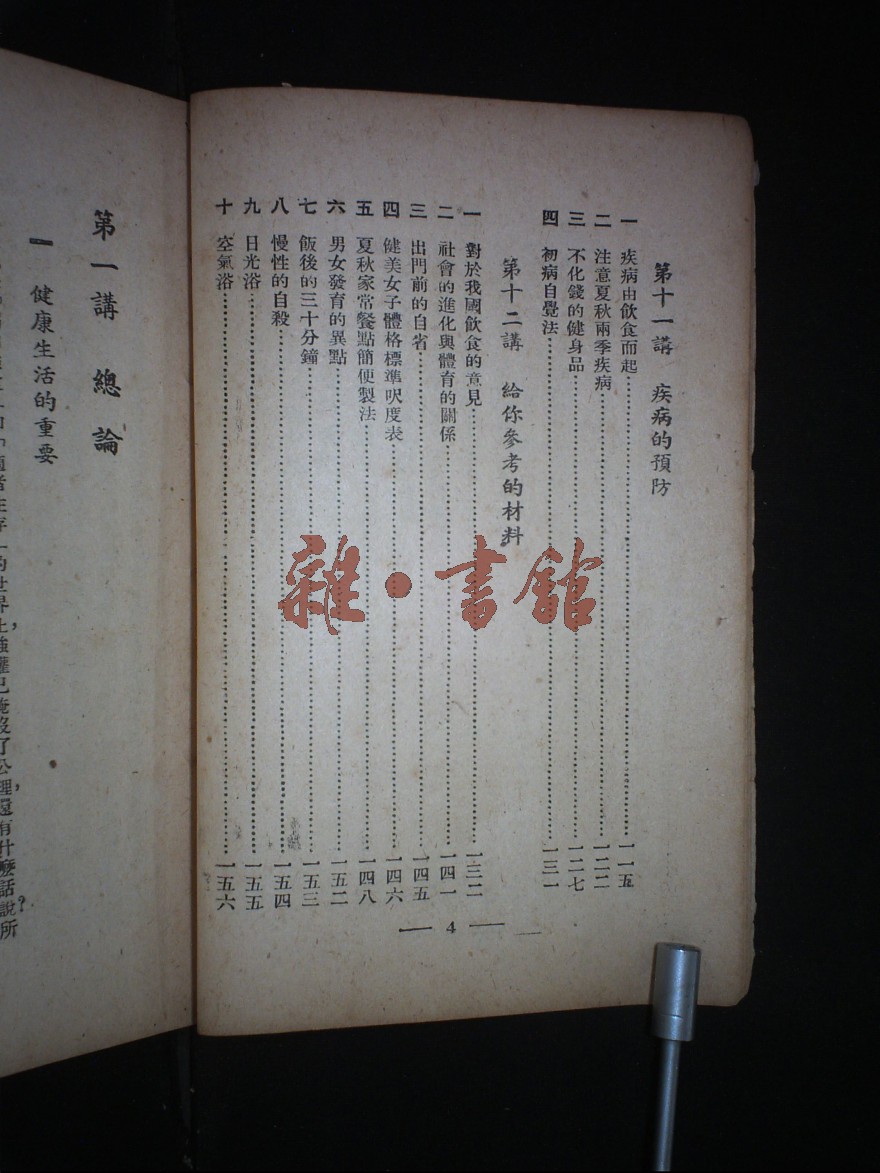 第十一講　疾病的預防
一　疾病由飲食而起……一一五
二　注意夏秋兩季疾病……一二二
三　不化錢的健身品……一二七
四　初病自覺法……一三一
第十二講　給你參考的材料
一　對於我國飲食的意見……一三二
二　社會的進化與體育的關係……一四一
三　出門前的自省……一四五
四　健美女子體格標準呎度表……一四六
五　夏秋家常餐點簡便製法……一四八
六　男女發育的異點……一五二
七　飯後的三十分鐘……一五三
八　慢性的自殺……一五四
九　日光浴……一五五
十　空氣浴……一五六
4
雜·書館
第一講　總論
一　健康生活的重要
的世界上，強權已掩沒了公理，還有什麼話說？所